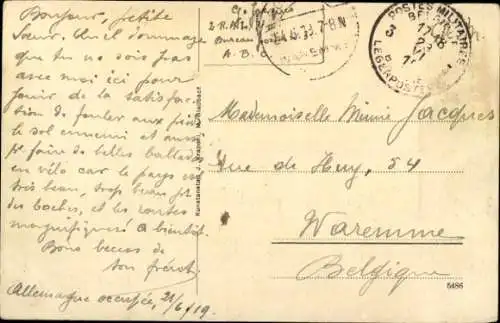 Bonjour, petite
sœur. Quel dommage
que tu ne sois pas
avec moi ici pour
jouir de la satisfac-
tion de fouler aux pieds
le sol ennemi et aussi
pr faire de belles ballades
en vélo car le pays est
très beau, trop beau pr
des boches, et les routes
magnifiques. A bientôt.
Bons baisers de
ton frérot.
Allemagne occupée, 21/6/19.
Kunstanstalt J.
Bureau
A. B.
7-8 N
WAREMME
POSTES MILITAIRES
BELGIQUE
3
LEGERPOSTERIJ
Mademoiselle Mimie Jacques
Rue de Huy, 54
Waremme
Belgique
5486